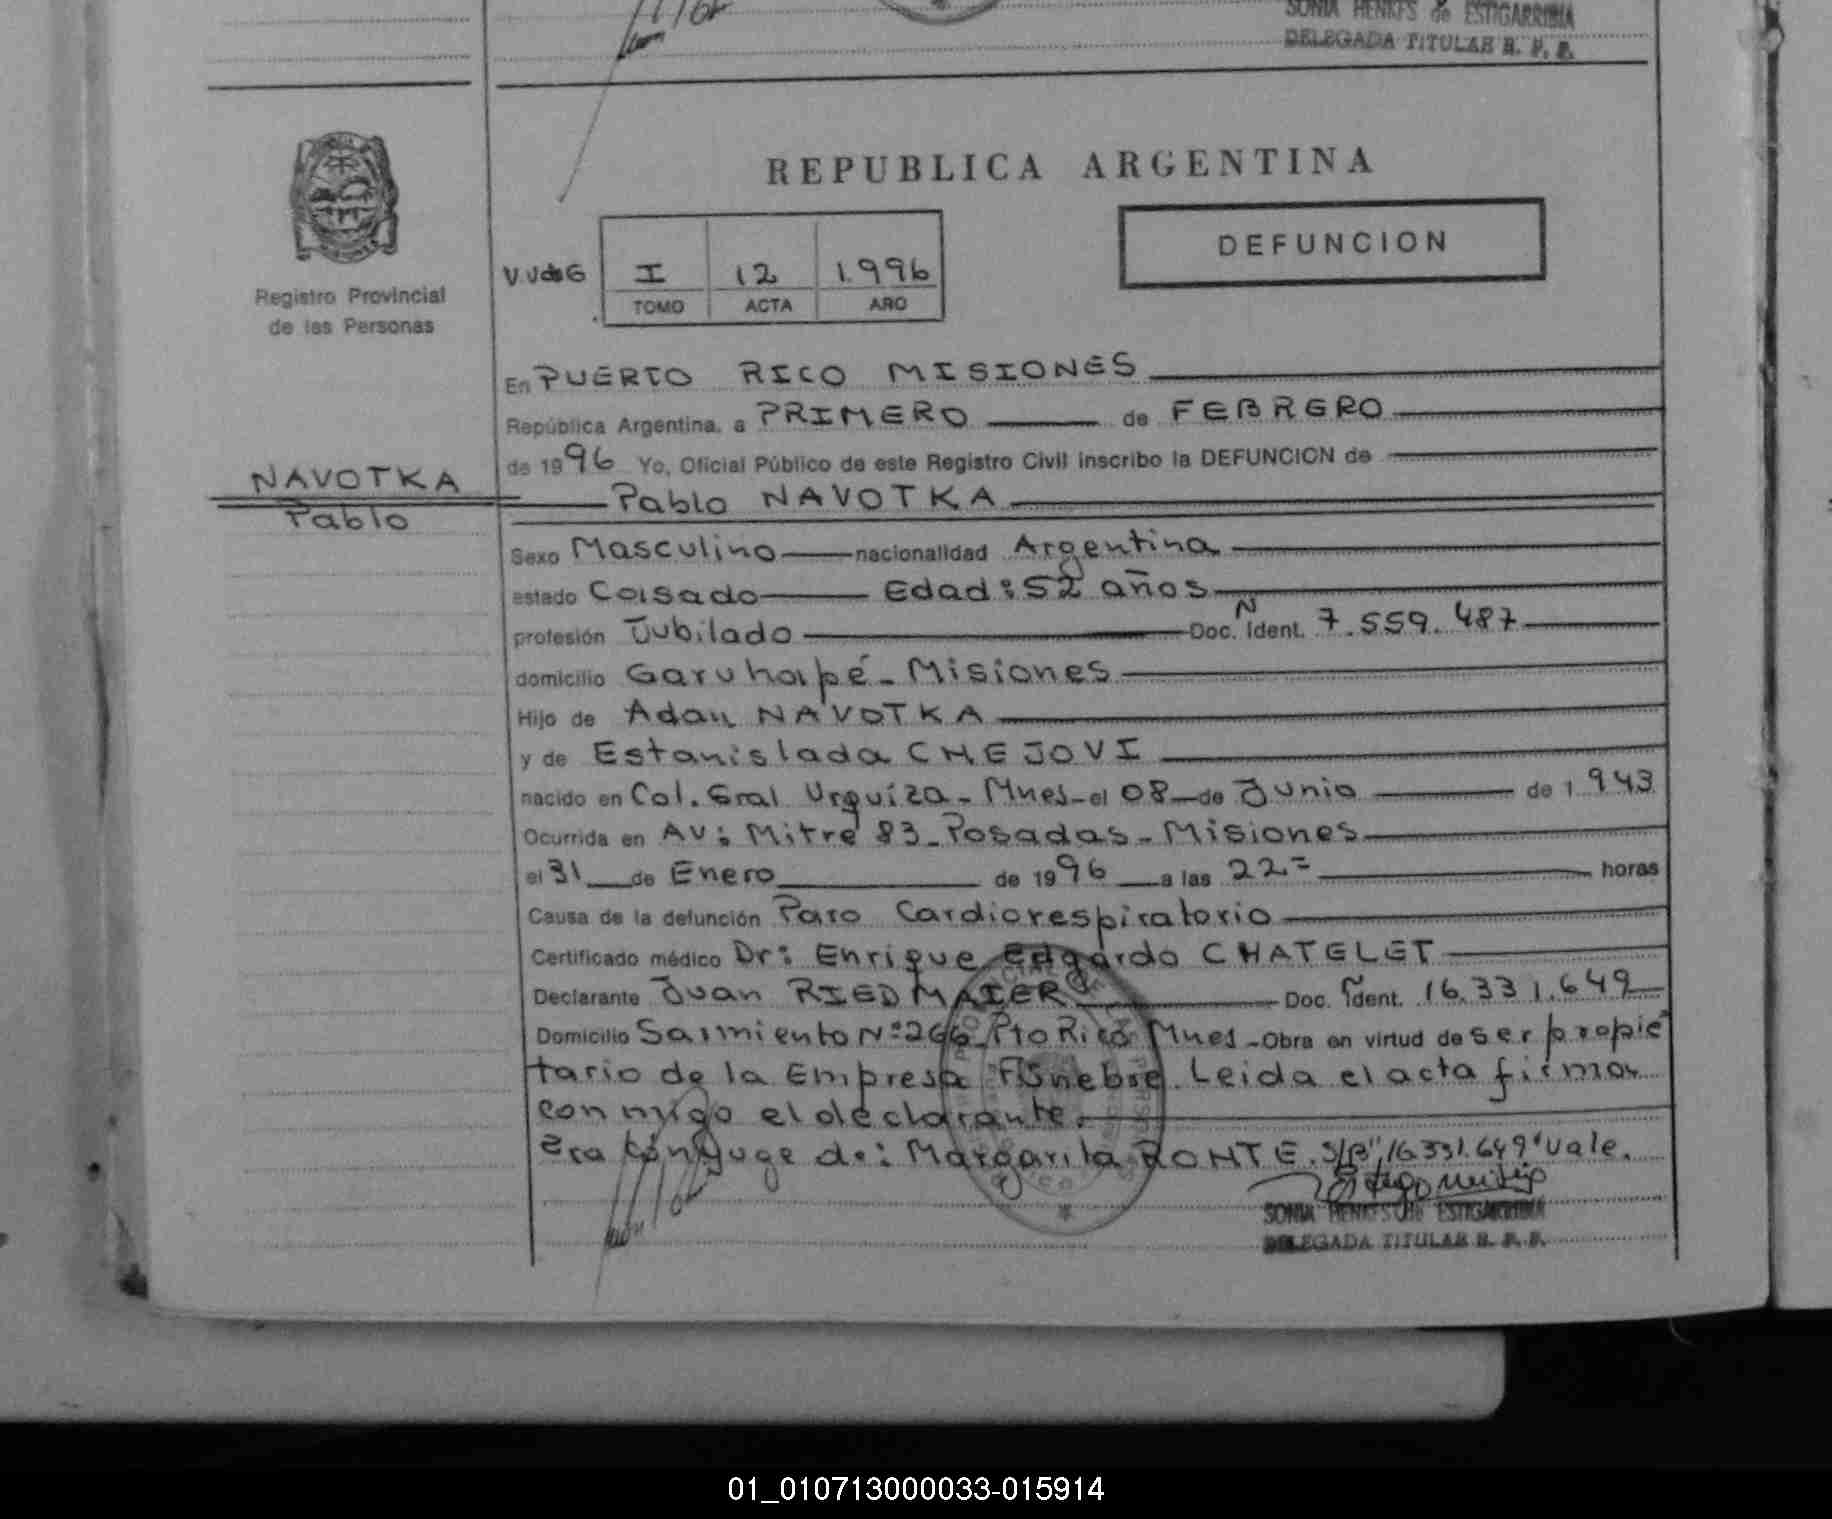 SONIA HENKFS de ESTIGARRIBIA
DELEGADA TITULAR R. P. P.
REPUBLICA ARGENTINA
DEFUNCION
I 12 1.996
TOMO ACTA AÑO
Registro Provincial
de las Personas
En PUERTO RICO MISIONES
República Argentina, a PRIMERO de FEBRERO
de 1996 Yo, Oficial Público de este Registro Civil inscribo la DEFUNCION de
NAVOTKA
Pablo
Pablo NAVOTKA
Sexo Masculino nacionalidad Argentina
estado Casado Edad: 52 años
profesión Jubilado Doc. N Ident. 7.559.487
domicilio Garuhapé - Misiones
Hijo de Adan NAVOTKA
y de Estanislada CHEJOVI
nacido en Col. Gral Urquiza - Mnes - el 08 de Junio de 1.943
Ocurrida en Av: Mitre 83 - Posadas - Misiones
el 31 de Enero de 1996 a las 22.= horas
Causa de la defunción Paro Cardiorespiratorio
Certificado médico Dr: Enrique Edgardo CHATELET
Declarante Juan RIEDMAIER Doc. Ident. 16.331.649
Domicilio Sarmiento Nº 266 Pto Rico Mnes - Obra en virtud de ser propie
tario de la Empresa Fúnebre. Leida el acta firma
conmigo el declarante.
Era Cónyuge de: Margarita RONTE. S/B "16.331.649" Vale.
SONIA HENKFS de ESTIGARRIBIA
DELEGADA TITULAR R. P. P.
01_010713000033-015914